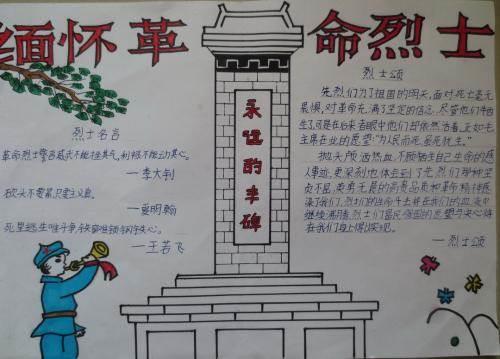 缅怀革命烈士
烈士名言
革命烈士誓言威武不能挫其气,利禄不能动其心。
—李大钊
砍头不要紧,只要主义真。
—夏明翰
死里逃生唯斗争,铁窗难锁钢铁心。
—王若飞
永恒的丰碑
烈士颂
先烈们为了祖国的明天,面对死亡毫无
畏惧,对革命充满了坚定的信念,尽管他们牺
牲了,可是在后来者眼中他们却依然活着,正如毛
主席在世的愿望:“为人民而死,虽死犹生。”
抛头颅,洒热血,不顾牺牲自己生命的感
人事迹,更深刻地体会到了先烈们那种坚
贞不屈,英勇无畏的高贵品质和革命精神感
染了我们,烈士们的生命斗志并在我们的血液中
继续沸腾,烈士们富民强国的愿望与决心将
在我们身上得以实现。
—烈士颂